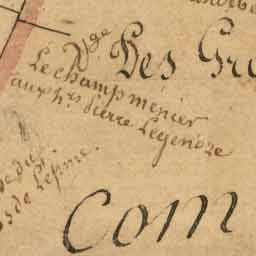 Vge
Les Gr
Le champ menier
aux hrs Pierre Legendre
de Lepine.
Com